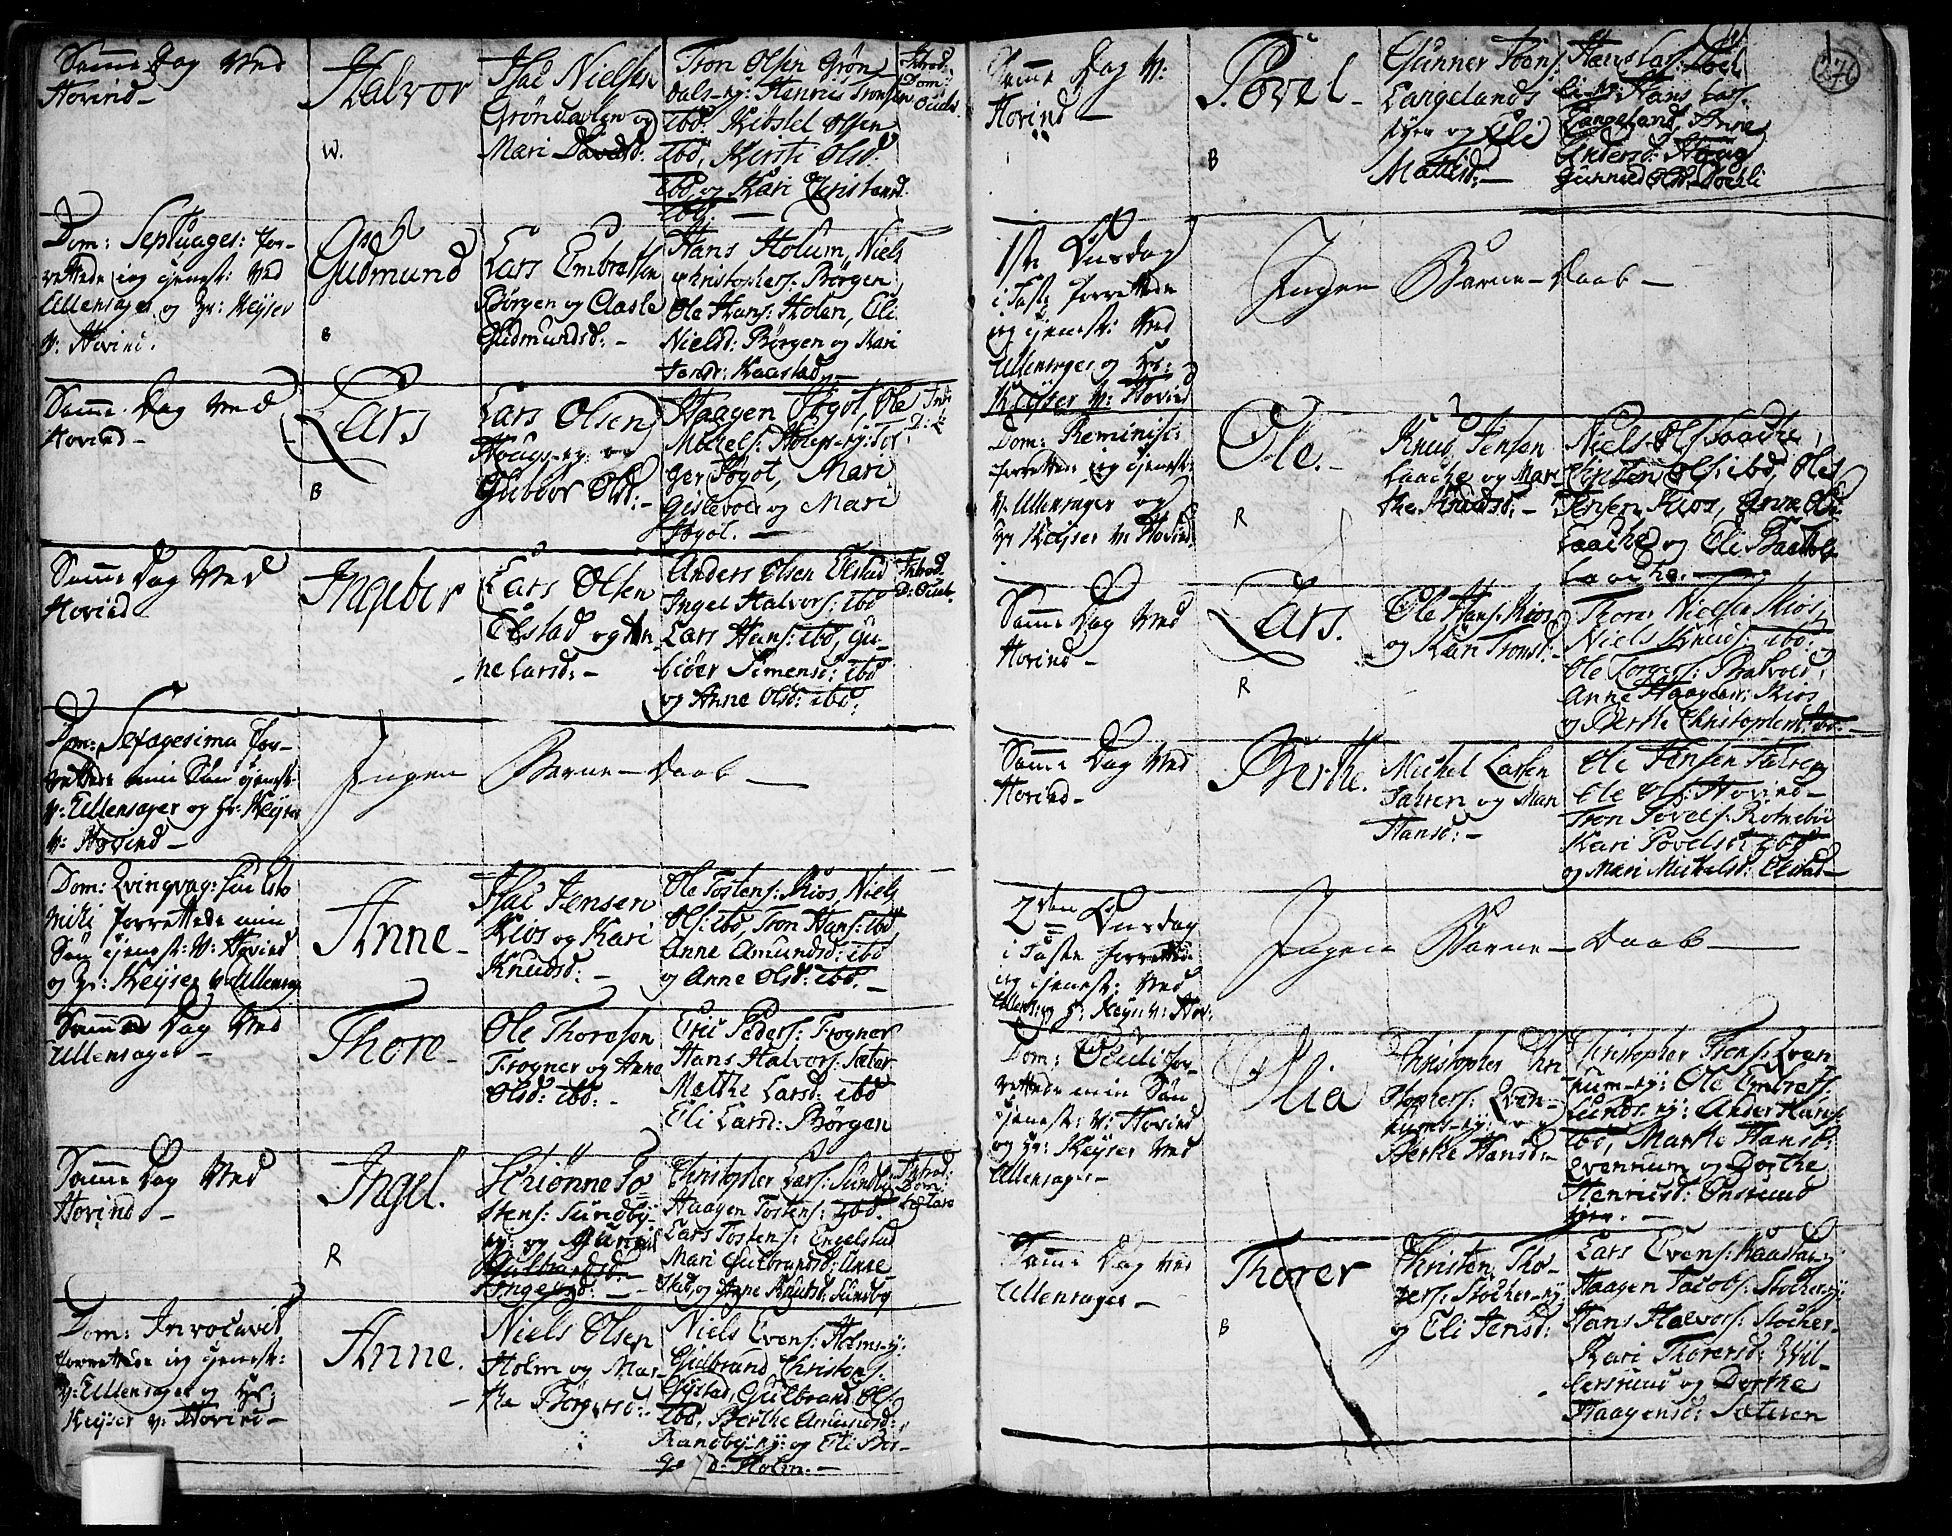 Samme Dag Ved
Hovind –
Halvor
W.
Isac Nielsen
Gröndalen og
Mari Davidsd:
Tron Olsen Grön
dals-ej: Henric Tronsen
ibd: Kibslel Olsen
ibd, Kersti Olsd:
ibd og Kari Christensd.
ibd. –
Introd.
Dom
Oculi
Dom: Septuages: for-
rettede jeg tjenest: Ved
Ullensager og Hr: Keyser
V: Hovind.
Gudmund
B
Lars Embretsen
Börgen og Claske
Gudmundsd: –
Hans Holum, Niels
Christophers: Börgen
Ole Hans: Holen, Eli
Nielsd: Börgen og Kari
Kaastad –
Samme Dag Ved
Hovind –
Lars
B
Lars Olsen
Hougs-ej: og
Gubiör Olsd: –
Haagen Fogot, Ole
Michels: Hougs-ej: Tor
ger Fogot, Mari
Gislevold og Mari
Fogot. –
Samme Dag Ved
Hovind
Ingebor
Lars Olsen
Elstad og An
ne Larsd: –
Anders Olsen Elstad
Ingel Halvors: ibd
Lars Hans: ibd, Gu-
biöer Simensd: ibd
og Anne Olsd: ibd:
Introd.
D: Ocul.
Dom: Sexagesima for-
rettede min Sön tjenest:
V: Ullensager og Hr: Keyser
V: Hovind –
Ingen Barne-Daab –
Dom: Qvinqvag:
forrettede min
Sön tjenest: V: Hovind
og Hr: Keyser V: Ullensag
Anne –
Isac Jensen
Kios og Kari
Knudsd: –
Ole Tostens: Kios, Niels
Ols: ibd, Tron Hans: ibd
Anne Amundsd: ibd
og Anne Olsd: ibd. –
Samme Dag Ved
Ullensager –
Thore –
Ole Thoresen
Frogner og Anne
Olsd: ibd: –
Eric Peders: Frogner
Hans Halvors: Sæter
Malthe Larsd: ibd
Eli Larsd: Börgen
Samme Dag Ved
Hovind –
Ingel.
R
Schiönne To-
stens: Sundby-
ej: og Gunnild
Gulbrandsd. –
Christopher Lars: Sundby
Haagen Tostens: ibd.
Lars Tostens: Engelstad
Mari Gulbrandsd: Anne
og Anne Knudsd: Sundby
Introd:
Dom
Lætare
Dom: Invocavit
forrettede jeg tjenest:
V: Ullensager og Hr:
Keyser V: Hovind –
Anne.
Niels Olsen
Holm og Mar-
the Börgersd: –
Niels Evens: Holms-ej:
Gulbrand Christens:
Gystad, Gulbrand Ols:
ibd, Berthe Amundsd:
Randby-ej: og Eli Bör-
ge d: Holm. –
276
Samme Dag V:
Hovind –
Povel –
B
Gunner Pouls:
Langelands
ejer og Eli
Mattisd: –
Hans Lars:
Hans Lars:
Langeland, Anne
Andersd: Haug
Gunnild Olsd.
1ste Onsdag
i Faste forrettede
jeg tjenest: Ved
Ullensager og Hr:
Keyser V: Hovind
Ingen Barne-Daab –
Dom: Reminisc:
forrettede jeg tjenest:
V: Ullensager og
Hr Keyser V: Hovind
Ole. –
R
Knud Jensen
Laache og Mar
the Knudsd: –
Niels Ols: Laache,
Christen Ols: ibd, Ole
Jensen Kios, Anne Ols:
Laache og Eli
Laache. –
Samme Dag Ved
Hovind –
Lars.
R
Ole Hans: Kios
og Kari Tronsd: –
Thorer Nielsen Kios,
Niels Knuds: ibd:
Ole Torgers: Bratvold,
Anne Haagens: Kios
og Berthe Christophersd: ibd. –
Samme Dag Ved
Hovind –
Berthe.
Michel Larsen
Jalsen og Mari
Hansd: –
Ole Jensen
Ole Ols: Hovind –
Tron Povels: Rotnebÿe
Kari Povelsd: ibd
og Mari Michelsd: Elstad –
2den Onsdag
i Faste forrettede
jeg tjenest: Ved
Ullens: og Hr. Keys: V: Hov:
Ingen Barne-Daab –
Dom: Oculi for-
rettede min Sön
tjenest: V: Hovind
og Hr: Keyser Ved
Ullensager –
Olia
Christopher Chri
stophers: Qven-
rums-ej: og
Berthe Hansd: –
Christopher Trons: Qven
rum-ej: Ole Embrets:
Lunds-ej: Anders Hans:
ibd, Marthe Hansd:
Qvenrum og Dorthe
Henricsd: Onsrud
ejer. –
Samme Dag Ved
Ullensager –
Thorer
B
Christen Tho-
rers: Stocher-ej:
og Eli Jensd:
Lars Evens: Kaastad-ej:
Haagen Jacobs: Stocher-ej:
Hans Halvors: Stocher-
Kari Thorersd: Wil-
lersrud og Dorthe
Haagensd: Sæteren